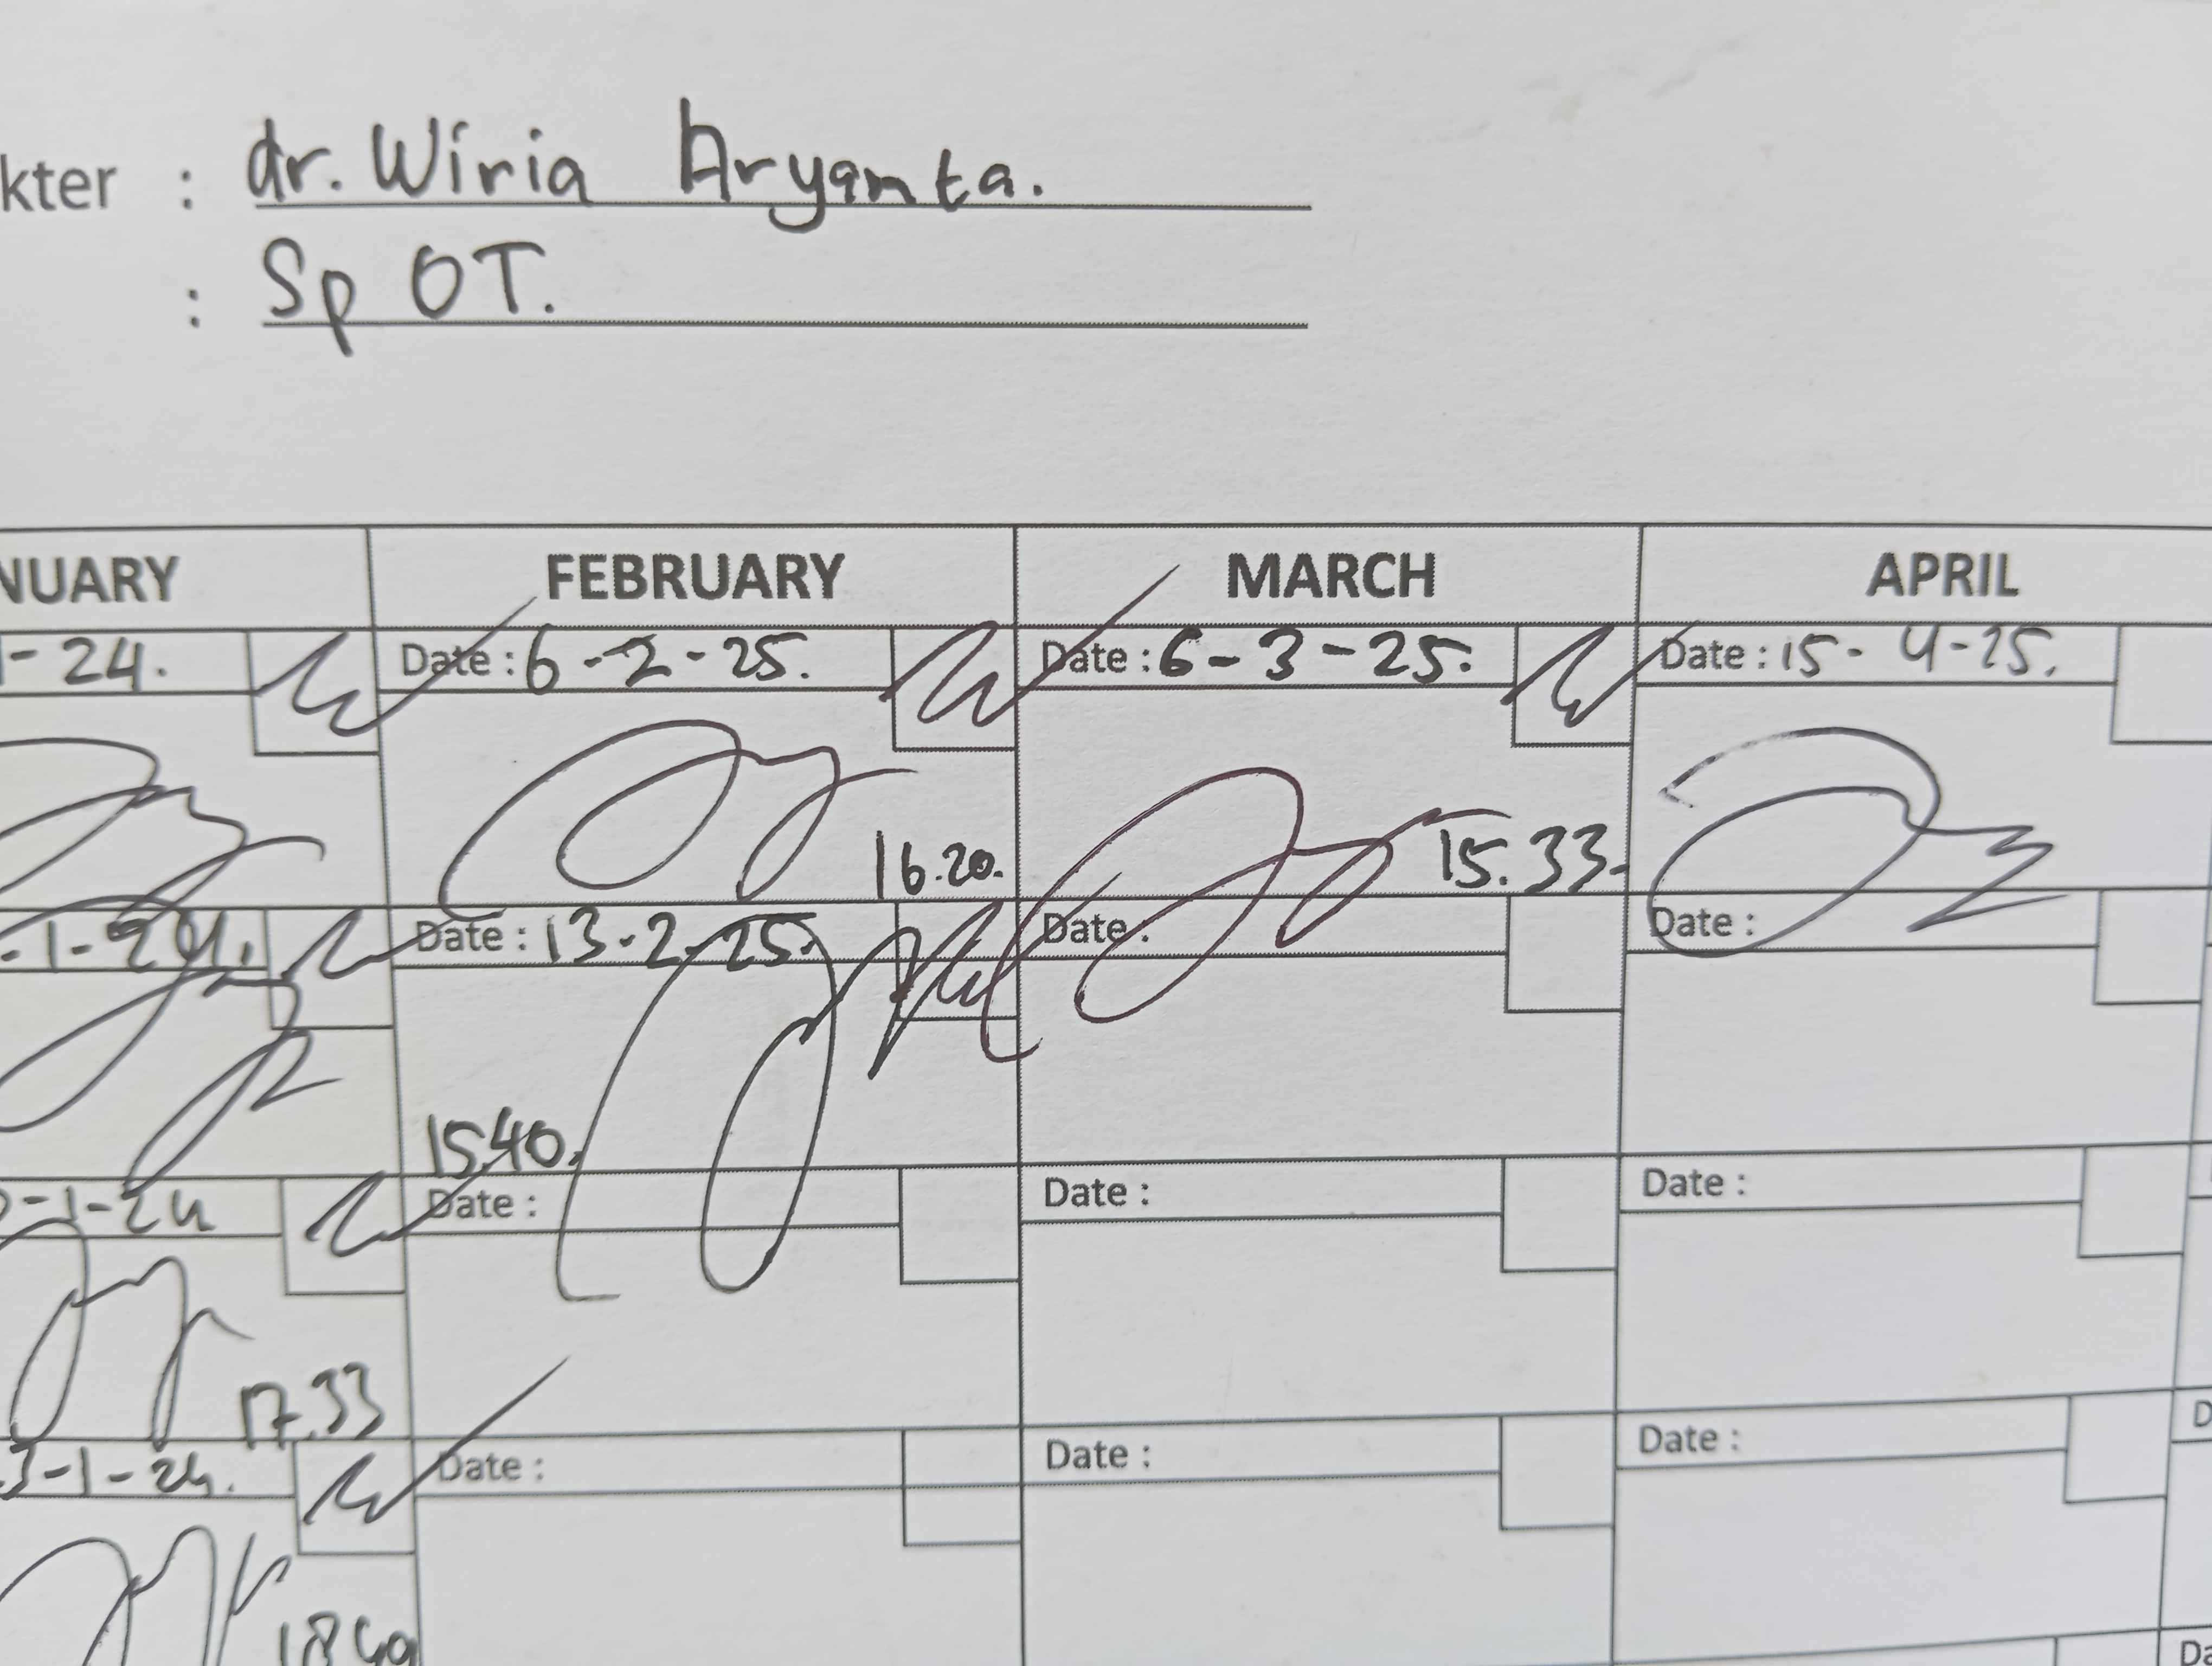 kter : dr. Wiria Aryanta.
: Sp OT.
NUARY FEBRUARY MARCH APRIL
-24. Date : 6-2-25. Date : 6-3-25. Date : 15-4-25.
16.20. 15.33.
-1-24. Date : 13-2-25. Date : Date :
15.40.
-1-24 Date : Date : Date :
17.33
3-1-24. Date : Date : Date : D
18.49
Da